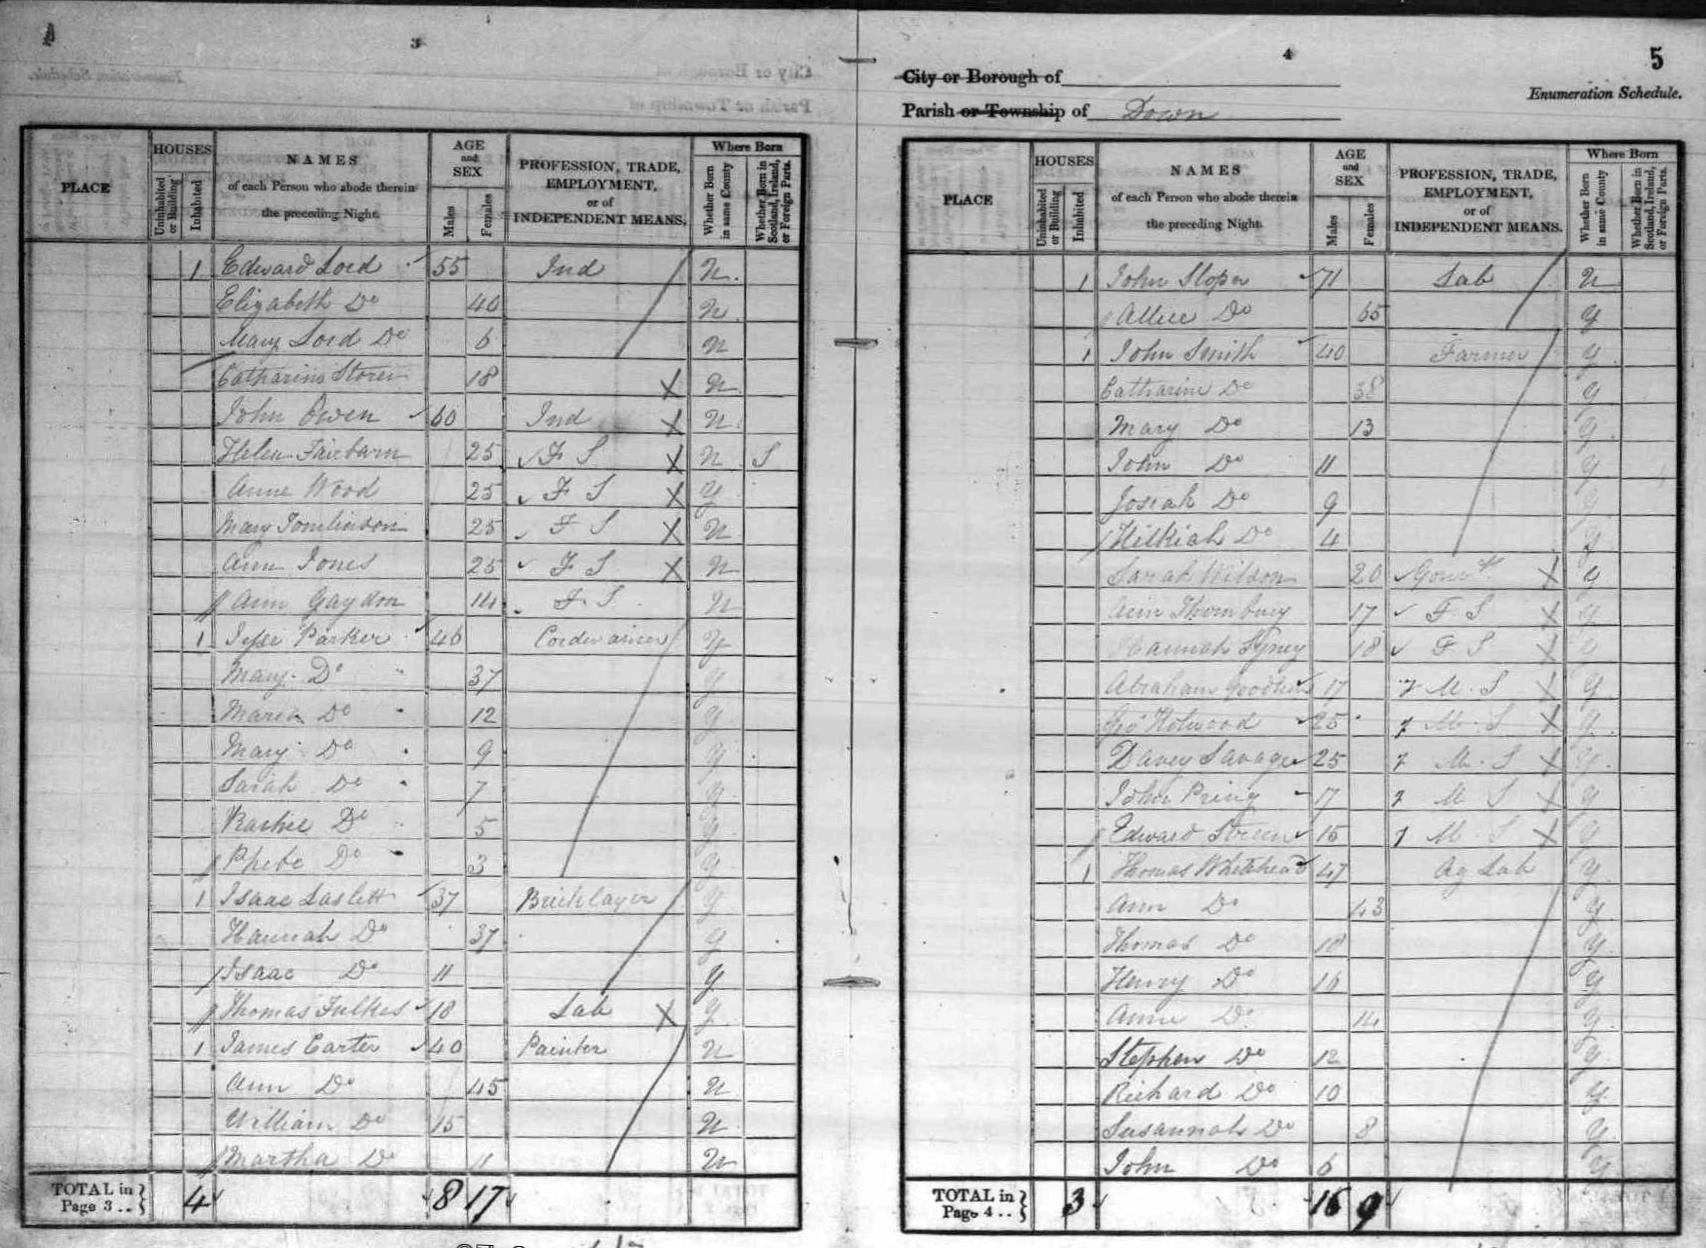 3
PLACE
HOUSES
Uninhabited or Building
Inhabited
NAMES
of each Person who abode therein
the preceding Night.
AGE
and
SEX
Males
Females
PROFESSION, TRADE,
EMPLOYMENT,
or of
INDEPENDENT MEANS.
Where Born
Whether Born in same County
Whether Born in Scotland, Ireland, or Foreign Parts.
1 Edward Lord 55 Ind N
Elizabeth Do 40 N
Mary Lord Do 6 N
Catharine Storer 18 N
John Owen 60 Ind N
Helen Fairbarn 25 F S N S
Anne Wood 25 F S Y
Mary Tomlinson 25 F S N
Ann Jones 25 F S N
Ann Gaydon 14 F S N
1 Jesse Parker 46 Cordwainer Y
Mary Do 37 Y
Maria Do 12 Y
Mary Do 9 Y
Sarah Do 7 Y
Rachel Do 5 Y
Phebe Do 3 Y
1 Isaac Laslett 37 Bricklayer Y
Hannah Do 37 Y
Isaac Do 11 Y
Thomas Fulkes 18 Lab Y
1 James Carter 40 Painter N
Ann Do 45 N
William Do 15 N
Martha Do 11 N
TOTAL in Page 3 .. } 4 8 17
4
5
City or Borough of
Enumeration Schedule.
Parish or Township of Down
PLACE
HOUSES
Uninhabited or Building
Inhabited
NAMES
of each Person who abode therein
the preceding Night.
AGE
and
SEX
Males
Females
PROFESSION, TRADE,
EMPLOYMENT,
or of
INDEPENDENT MEANS.
Where Born
Whether Born in same County
Whether Born in Scotland, Ireland, or Foreign Parts.
1 John Sloper 71 Lab N
Allice Do 65 Y
1 John Smith 40 Farmer Y
Catharine Do 38 Y
Mary Do 13 Y
John Do 11 Y
Josiah Do 9 Y
Hilkiah Do 4 Y
Sarah Wilson 20 Y
Ann Thornbury 17 F S Y
Hannah 18 F S Y
Abraham 17 M S Y
Geo Hotwood 25 M S Y
Davey Savage 25 M S Y
John Pring 17 M S Y
Edward 15 M S Y
1 Thomas Whitehead 47 Ag Lab Y
Ann Do 43 Y
Thomas Do 18 Y
Henry Do 16 Y
Anne Do 14 Y
Stephen Do 12 Y
Richard Do 10 Y
Susannah Do 8 Y
John Do 6 Y
TOTAL in Page 4 .. } 3 16 9